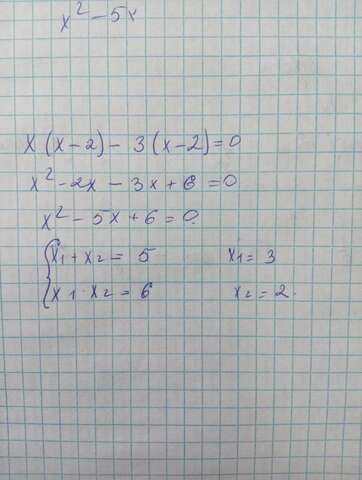 x² - 5x
x (x - 2) - 3 (x - 2) = 0
x² - 2x - 3x + 6 = 0
x² - 5x + 6 = 0.
{ x1 + x2 = 5 x1 = 3
x1 · x2 = 6 x2 = 2.